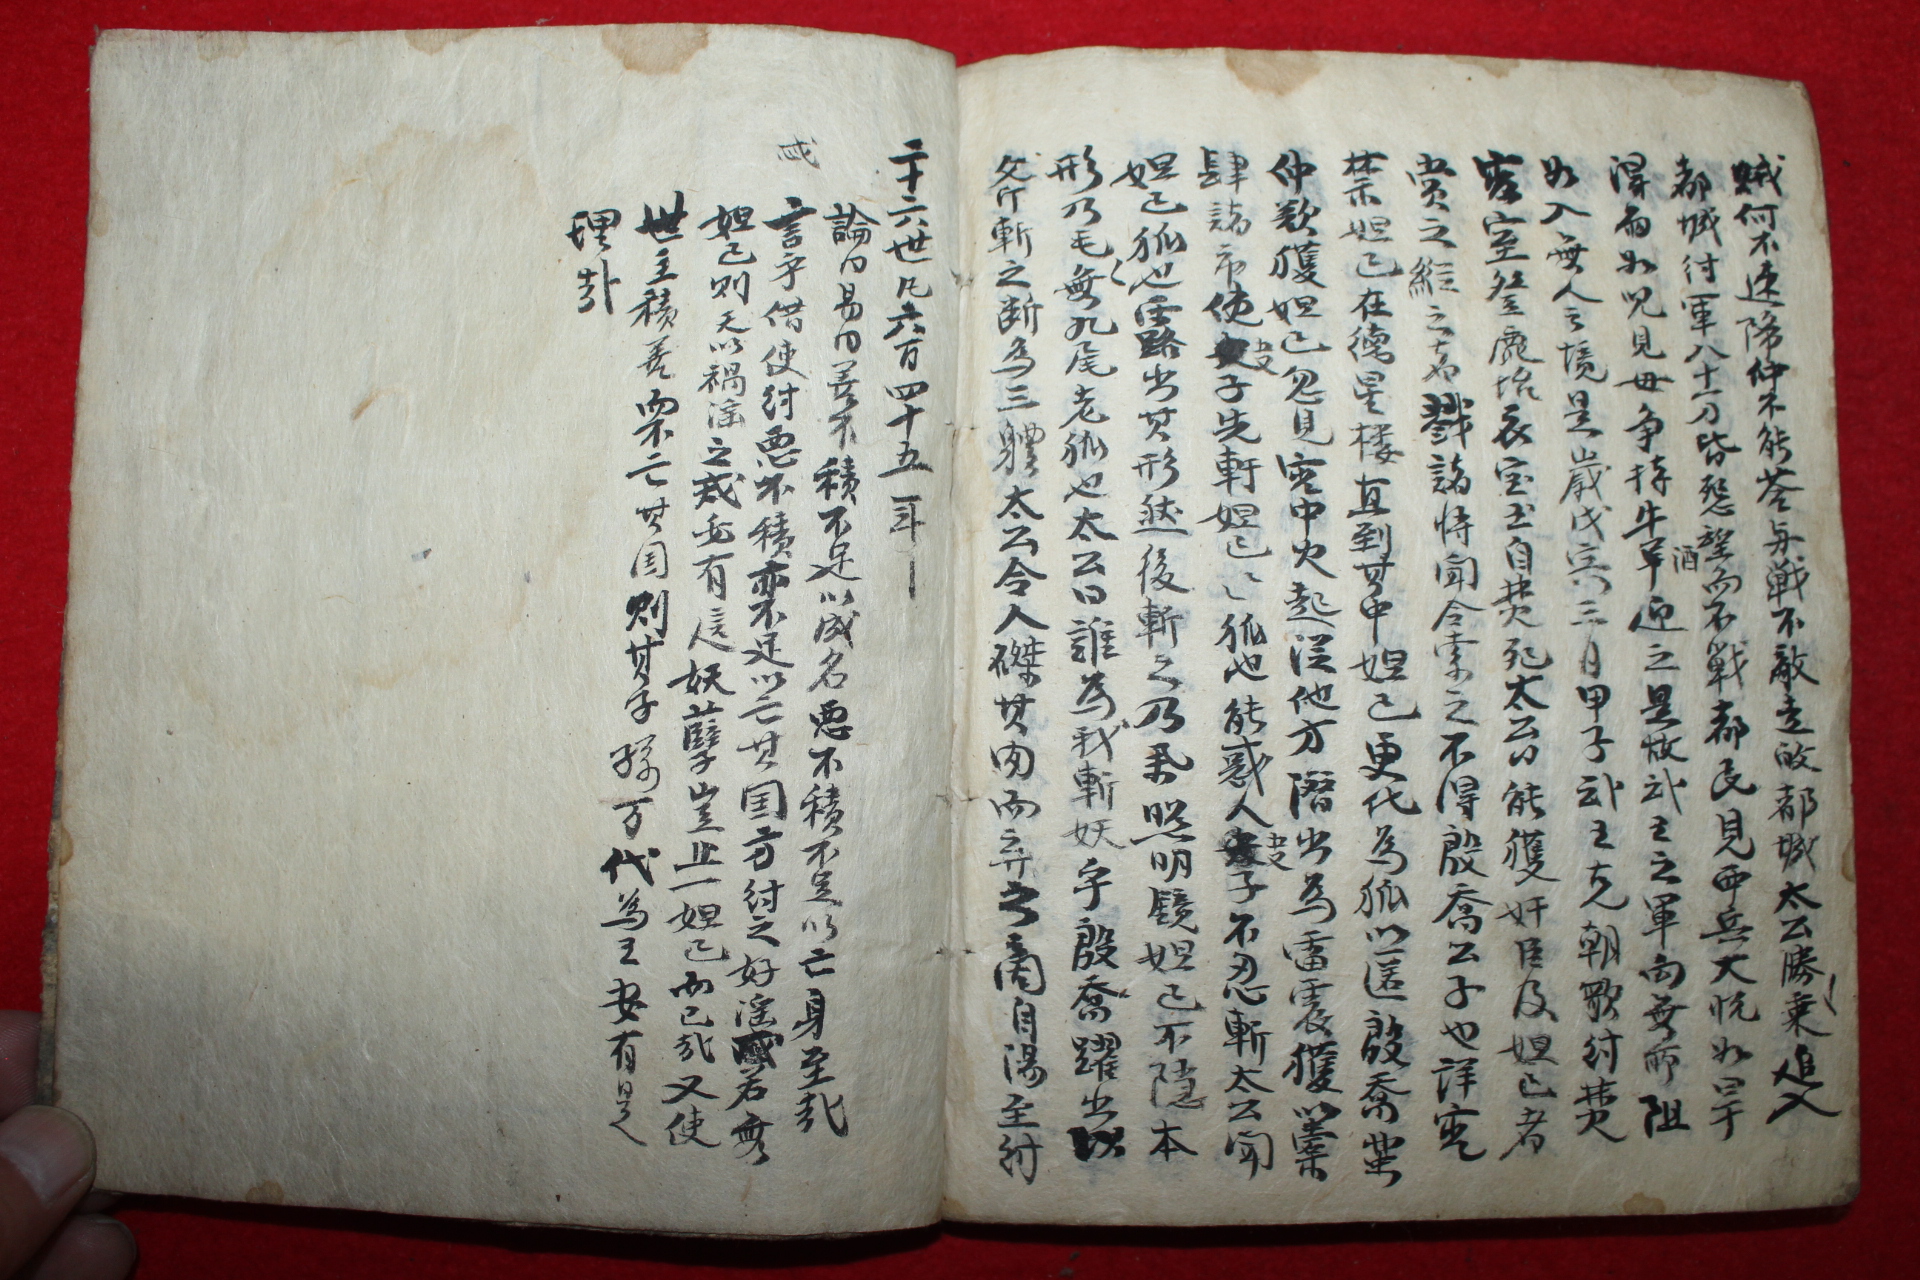 賊何不速降仲不能答与戰不敵走故都城太公勝乘追入
都城紂軍八十万皆怨望而不戰都民見西兵大悅如旱
得雨如児見母争持牛羊酒迎之是故武王之軍向無所阻
如入無人之境是歲戊寅三月甲子武王克朝歌紂焚
室登鹿坮衣宝玉自焚死太公曰能獲奸臣及妲己者
賞之縱之者戮諸將聞令索之不得殷喬公子也詳
禁妲己在摘星楼直到其中妲己更代為狐以匿殷喬
仲欲獲妲己忽見空中火起從他方潛出為雷震獲以
肆諸市使子先斬妲己妲己狐也能惑人子不忍斬太公聞
妲己狐也露出其形然後斬之乃照明鏡妲己不隱本
形乃毛無九尾老狐也太公曰誰為我斬妖乎殷喬躍出以
斧斬之断為三體太公令人磔其肉而弃之商自湯至紂
二十六世凡六百四十五年
論曰易曰善不積不足以成名悪不積不足以亡身至哉
言乎借使紂悪不積亦不足以亡其国方紂之好淫惑若無
妲己則天以禍淫之戒豈有這妖孽豈止一妲己而已哉又使
世主積善而不亡其国則其子孫万代為王安有是
理哉
惑